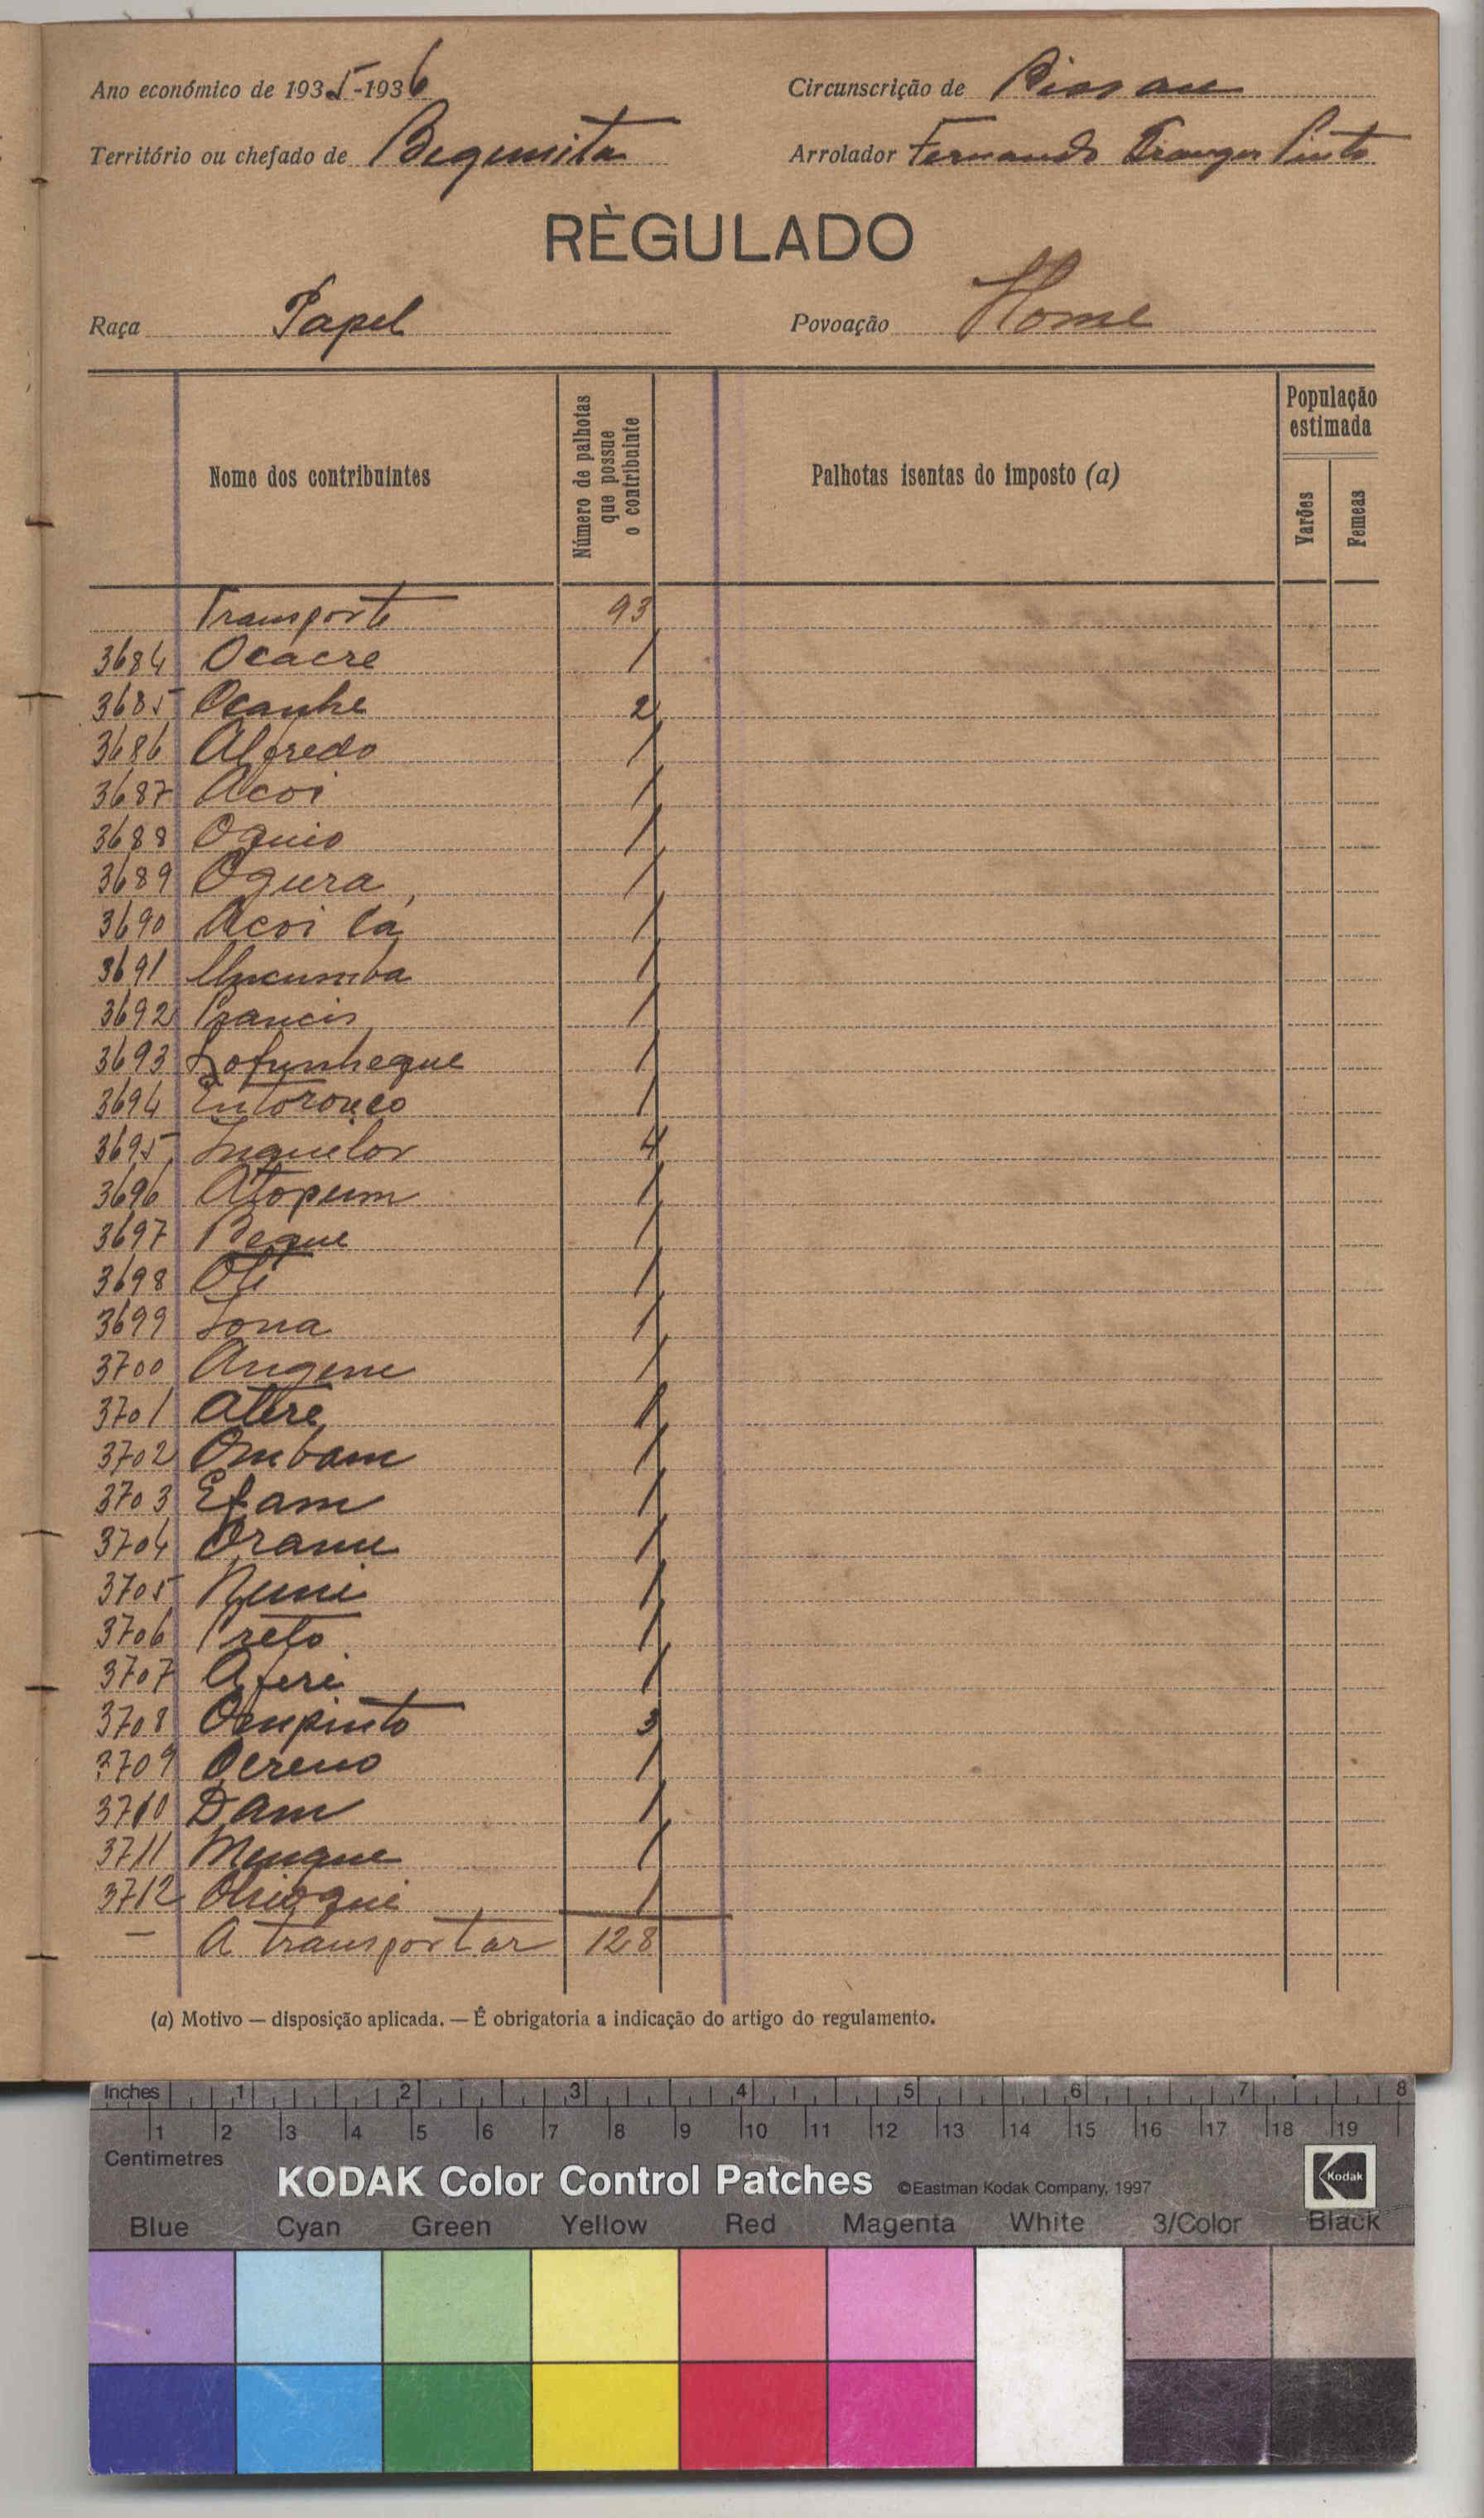 Ano económico de 1935-1936 Circunscrição de Bissau
Território ou chefado de Begemita Arrolador Fernando Pinto
RÈGULADO
Raça Papel Povoação Home
Nome dos contribuintes
Número de palhotas que possue o contribuinte
Palhotas isentas do imposto (a)
População estimada
Varões
Femeas
Transporte 93
3684 Ocacre 1
3685 Ocanhe 2
3686 Alfredo 1
3687 Acoi 1
3688 Oquio 1
3689 Ogura 1
3690 Acoi Cá 1
3691 1
3692 Francis 1
3693 Lofunheque 1
3694 Entoronco 1
3695 Inquelor 4
3696 Atopum 1
3697 Beque 1
3698 Oti 1
3699 Iona 1
3700 Angene 1
3701 Atere 1
3702 Ombam 1
3703 Efam 1
3704 Orame 1
3705 1
3706 Preto 1
3707 Aferi 1
3708 Ompinto 3
3709 Ocreno 1
3710 Dam 1
3711 Menque 1
3712 1
— A transportar 128
(a) Motivo — disposição aplicada. — É obrigatoria a indicação do artigo do regulamento.
Inches 1 2 3 4 5 6 7 8
1 2 3 4 5 6 7 8 9 10 11 12 13 14 15 16 17 18 19
Centimetres
KODAK Color Control Patches ©Eastman Kodak Company, 1997 Kodak
Blue Cyan Green Yellow Red Magenta White 3/Color Black